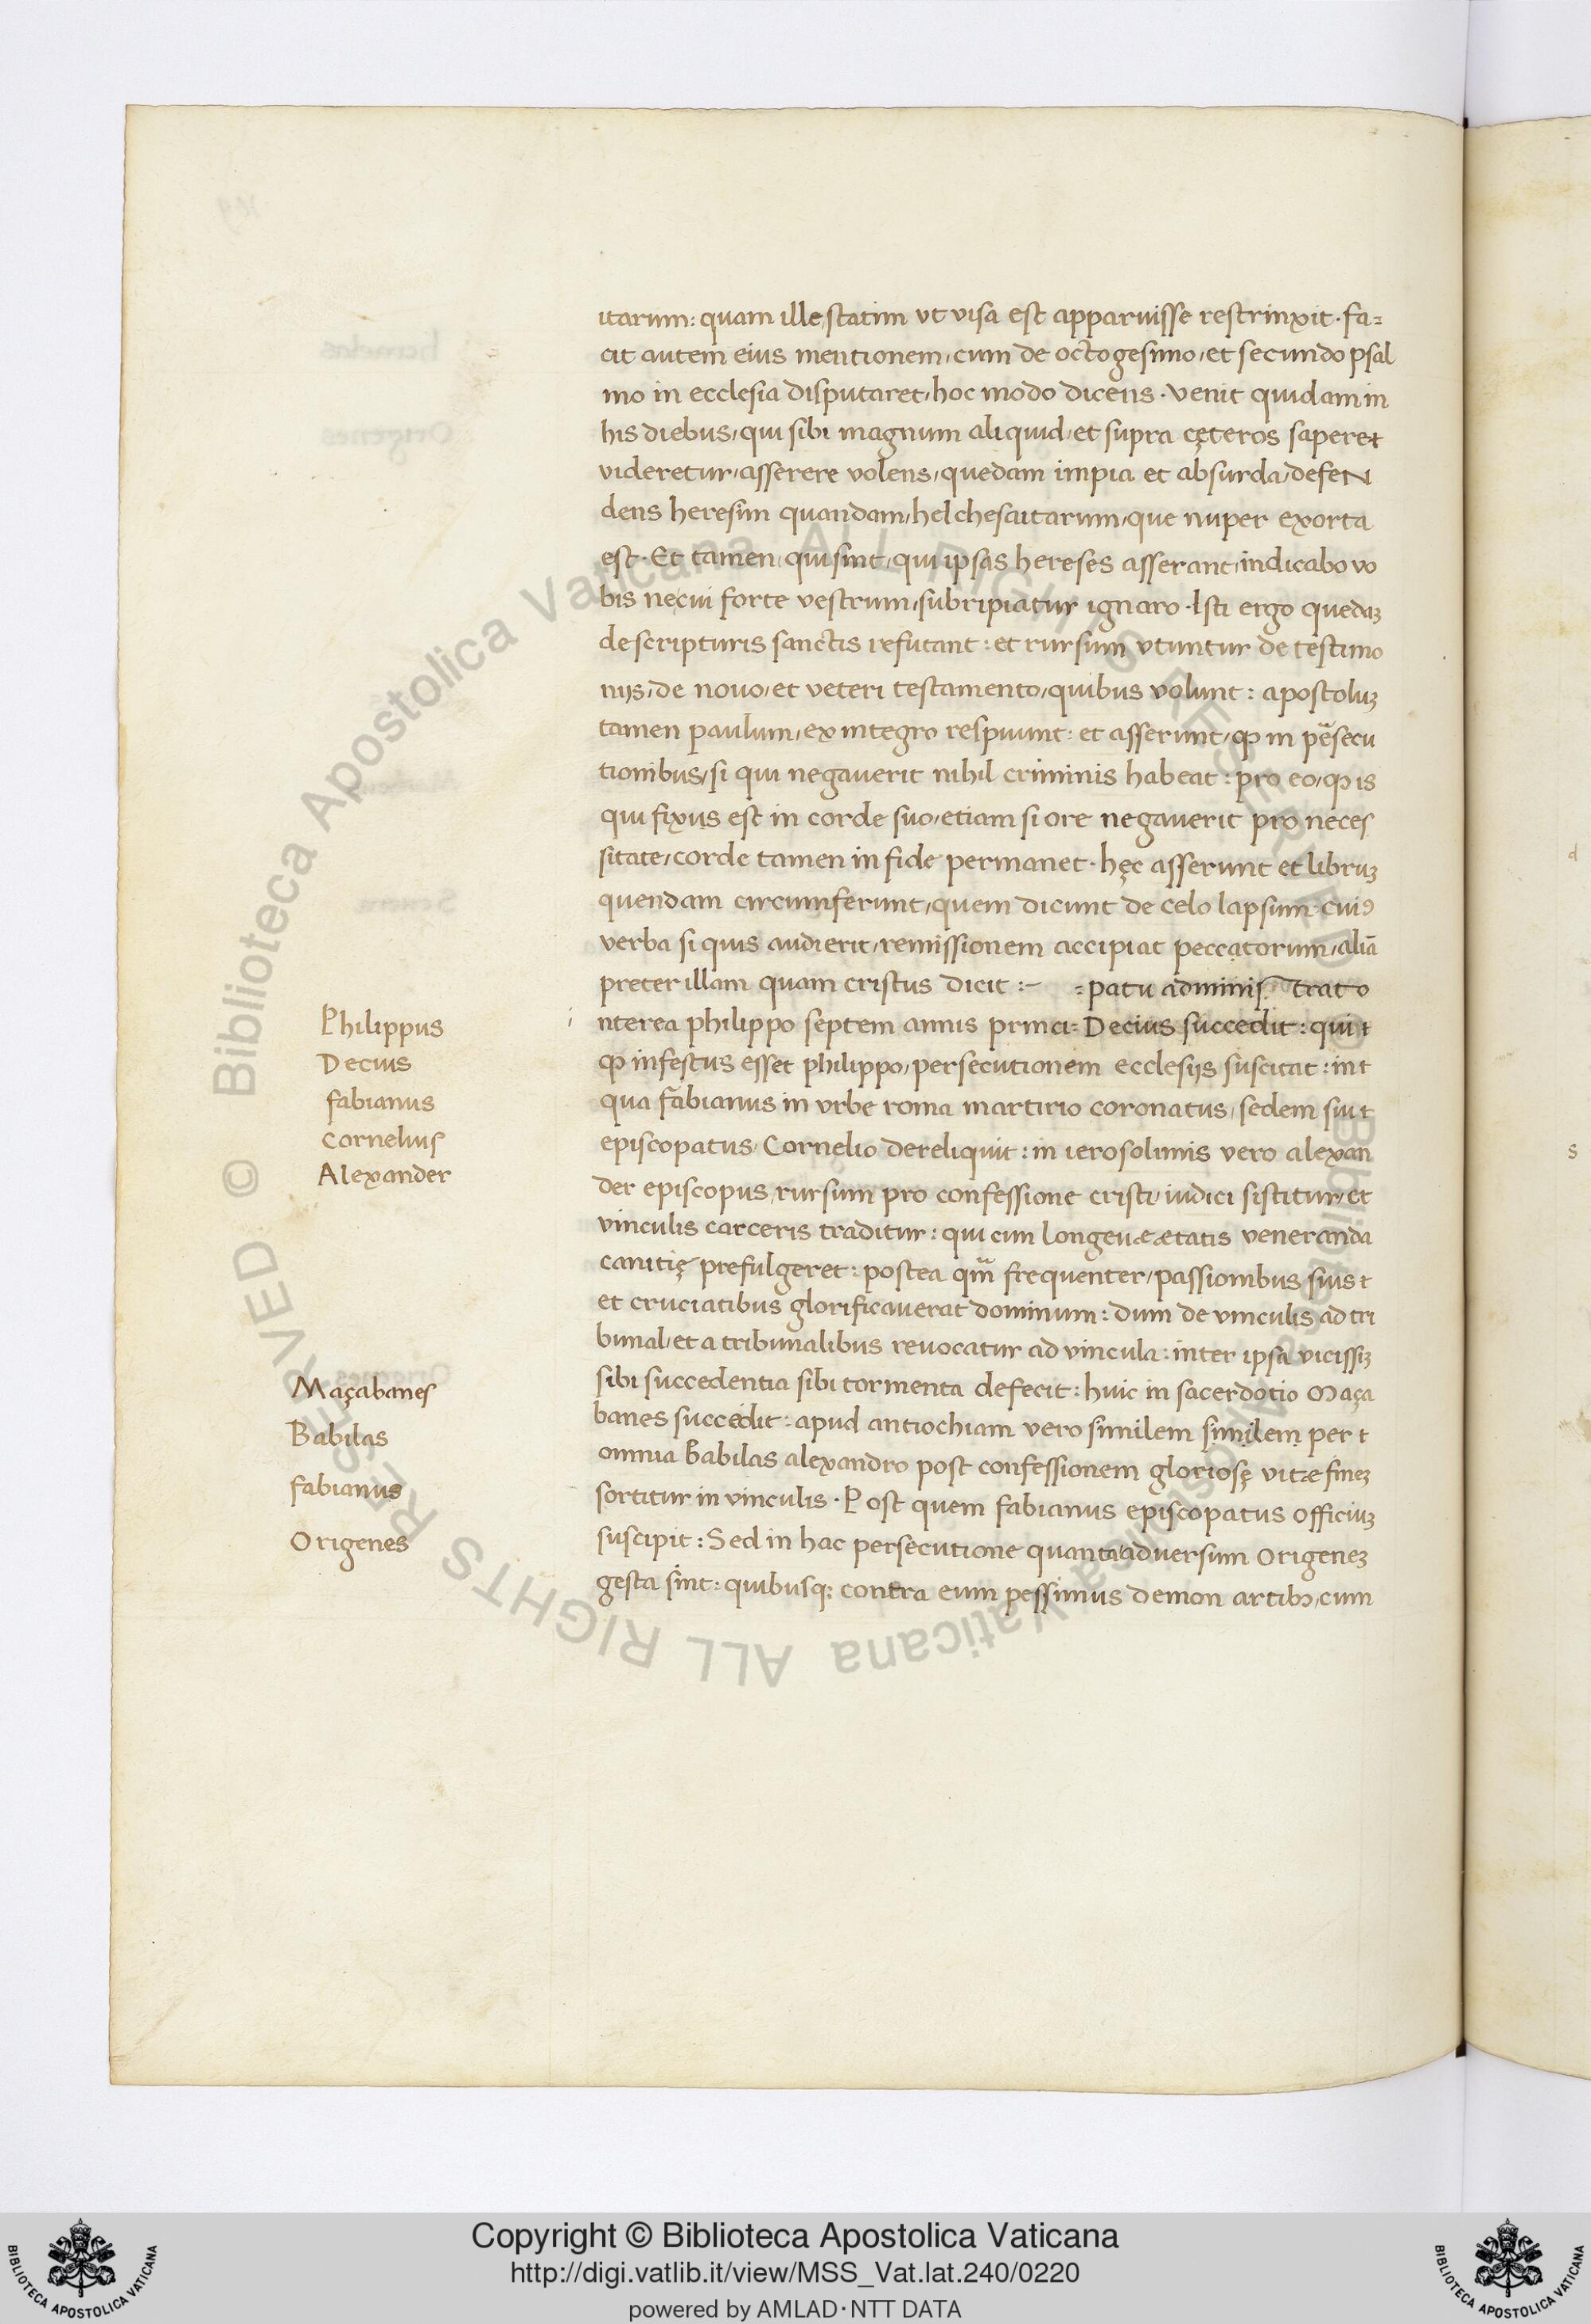 itarum: quam ille statim ut visa est apparuisse restrinxit· fa=
cit autem eius mentionem, cum de octogesimo, et secundo psal
mo in ecclesia disputaret, hoc modo dicens· venit quidam in
his diebus, qui sibi magnum aliquid, et supra cęteros saperet
videretur, asserere volens, quedam impia et absurda, defeN
dens heresim quandam, helchesaitarum, que nuper exorta
est· Et tamen, qui sint, qui ipsas hereses asserant, indicabo vo
bis necui forte vestrum, subripiatur ignaro· Isti ergo quedaʒ
de scripturis sanctis refutant: et rursum utuntur de testimo
niis, de novo, et veteri testamento, quibus volunt: apostoluʒ
tamen paulum, ex integro respuunt: et asserunt, ꝙ in persecu
tionibus, si qui negaverit nihil criminis habeat: pro eo, ꝙ is
qui fixus est in corde suo, etiam si ore negaverit pro neces
sitate, corde tamen in fide permanet· hęc asserunt et libruʒ
quendam circumferunt, quem dicunt de celo lapsum· cuiꝰ
verba si quis audierit, remissionem accipiat peccatorum, aliā
preter illam quam cristus dicit :~ =patu adminis trato
i nterea philippo septem annis princi= Decius succedit: qui t
ꝙ infestus esset philippo, persecutionem ecclesiis suscitat: in t
qua fabianus in urbe roma martirio coronatus, sedem sui t
episcopatus Cornelio dereliquit: in ierosolimis vero alexan
der episcopus, rursum pro confessione cristi, iudici sistitur, et
vinculis carceris traditur: qui cum longevæ ætatis veneranda
canitię prefulgeret: postea qm̄ frequenter, passionibus suis t
et cruciatibus glorificaverat dominum: dum de vinculis ad tri
bunal, et a tribunalibus revocatur ad vincula: inter ipsa vicissiʒ
sibi succedentia sibi tormenta defecit: huic in sacerdotio Maça
banes succedit: apud antiochiam vero similem similem per t
omnia Babilas alexandro post confessionem gloriosę vitæ fineʒ
sortitur in vinculis· Post quem fabianus episcopatus officiuʒ
suscipit: Sed in hac persecutione quanta adversum Origeneʒ
gesta sint: quibusqꝫ contra eum pessimus demon artibꝰ, cum
Philippus
Decius
fabianus
Cornelius
Alexander
Maçabanes
Babilas
fabianus
Origenes
d
s
© Biblioteca Apostolica Vaticana ALL RIGHTS RESERVED
Copyright © Biblioteca Apostolica Vaticana
http://digi.vatlib.it/view/MSS_Vat.lat.240/0220
powered by AMLAD·NTT DATA
BIBLIOTECA APOSTOLICA VATICANA
BIBLIOTECA APOSTOLICA VATICANA